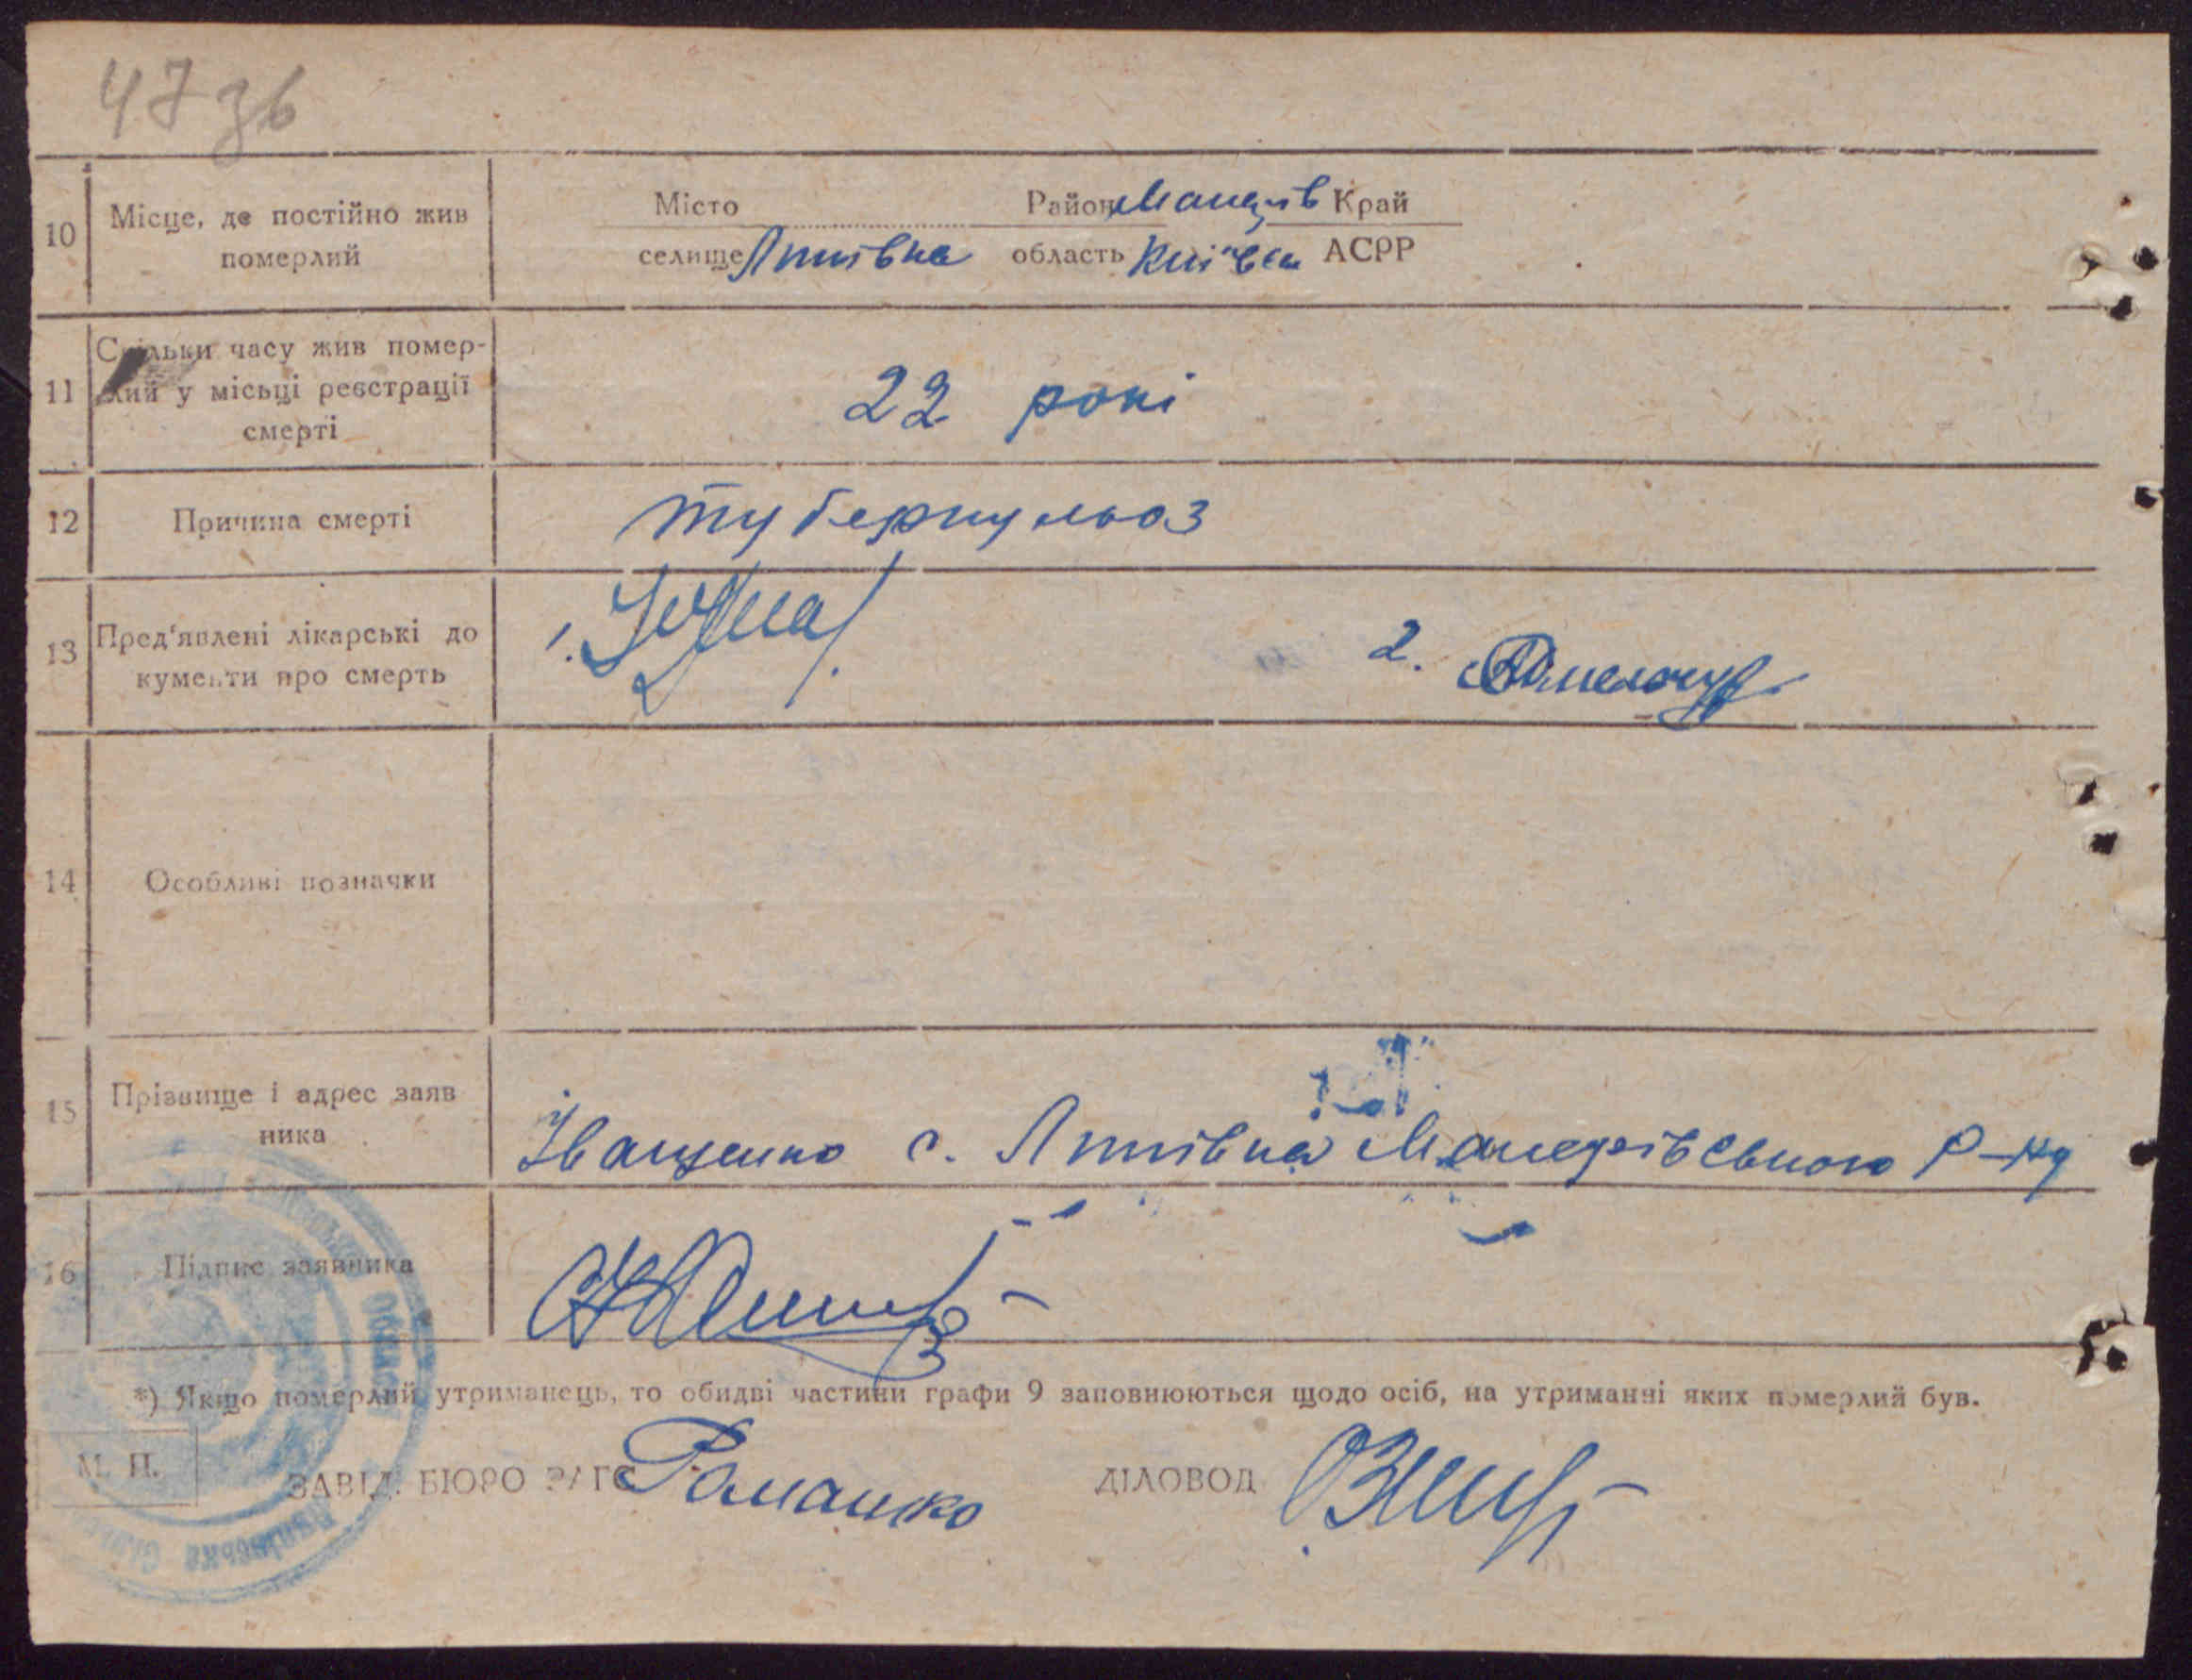 47 зв
10 Місце, де постійно жив померлий
Місто Район Макарів Край
селище Липівка область Київськ АСРР
11 Скільки часу жив померлий у місьці реєстрації смерті
22 рокі
12 Причина смерті
туберкульоз
13 Пред'явлені лікарські документи про смерть
1. 2.
14 Особливі позначки
15 Прізвище і адрес заявника
Іващенко с. Липівка Макарівського р-ну
16 Підпис заявника
*) Якщо померлий утриманець, то обидві частини графи 9 заповнюються щодо осіб, на утриманні яких померлий був.
М. П.
ЗАВІД. БЮРО РАГС Романко ДІЛОВОД